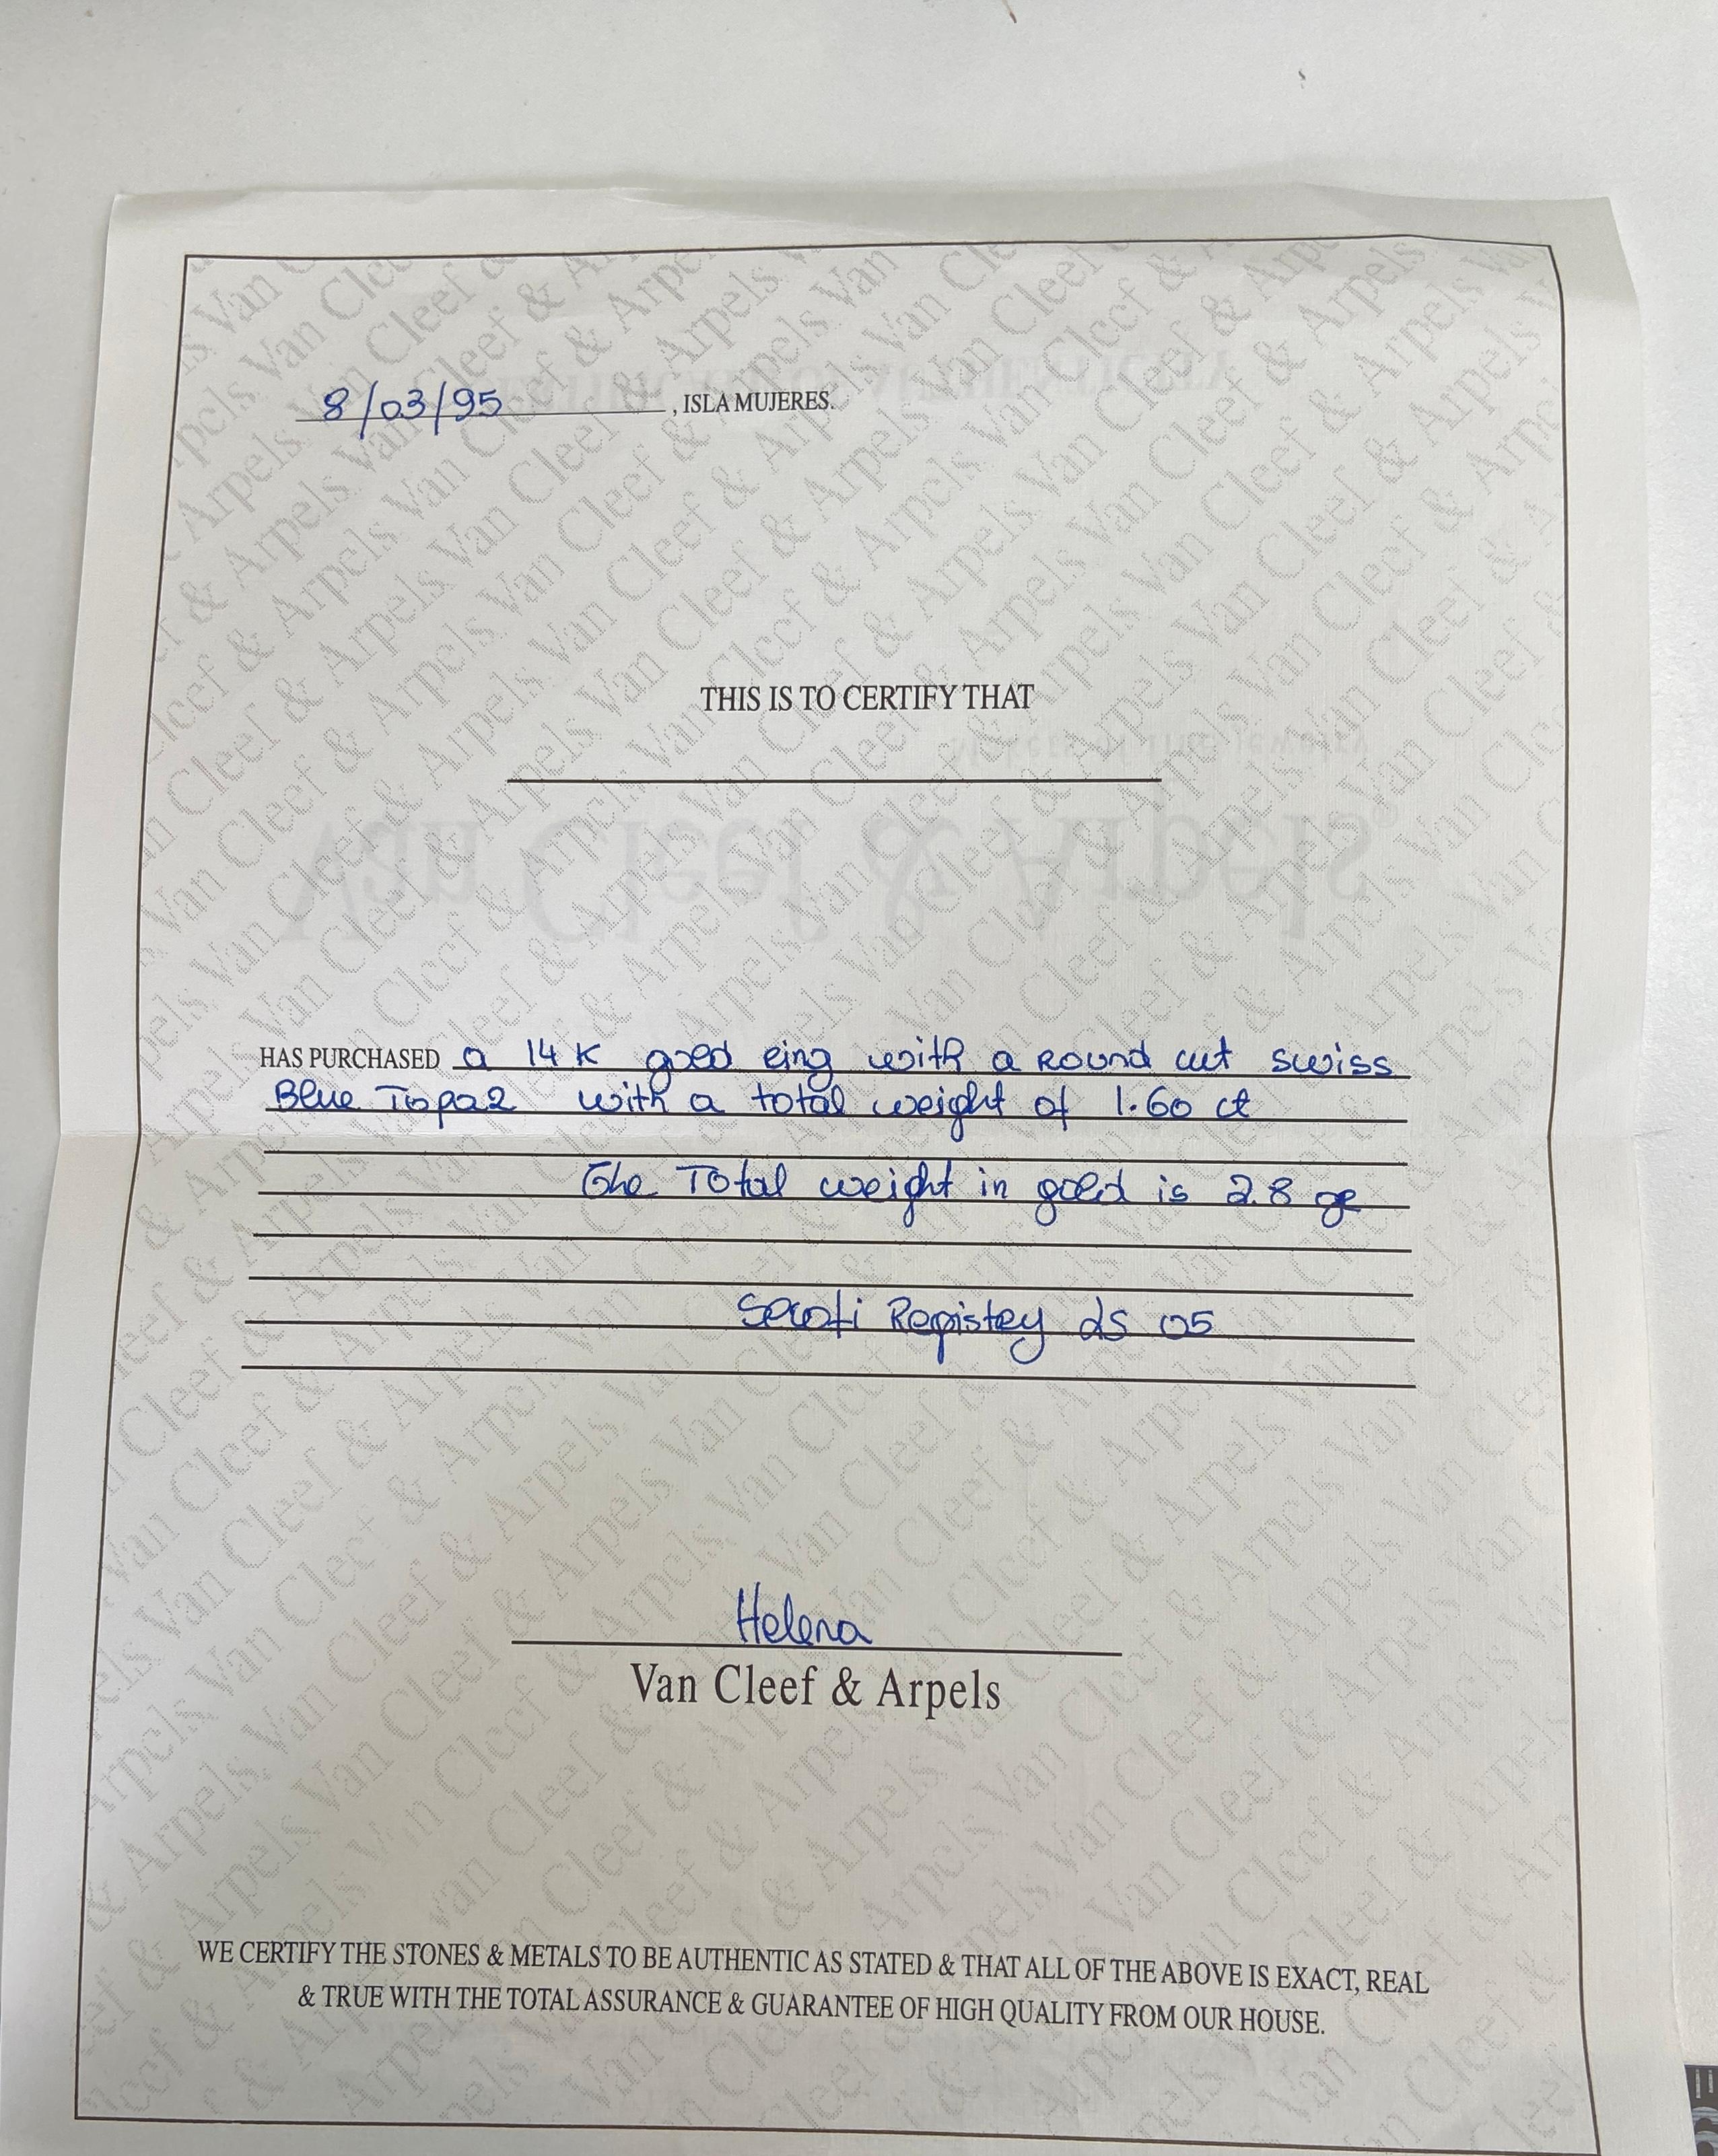 8/03/95, ISLA MUJERES.
THIS IS TO CERTIFY THAT
HAS PURCHASED a 14K gold ring with a Round cut swiss
Blue Topaz with a total weight of 1.60 ct
The Total weight in gold is 2.8 gr
Registry 05
Helena
Van Cleef & Arpels
WE CERTIFY THE STONES & METALS TO BE AUTHENTIC AS STATED & THAT ALL OF THE ABOVE IS EXACT, REAL
& TRUE WITH THE TOTAL ASSURANCE & GUARANTEE OF HIGH QUALITY FROM OUR HOUSE.